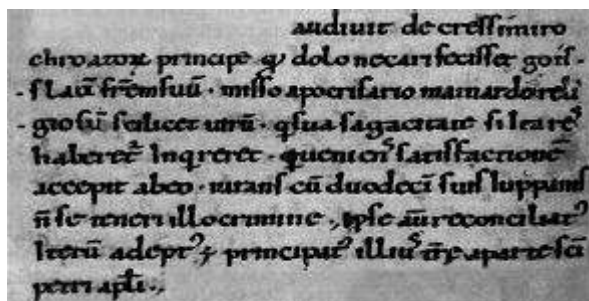 audiuit de cressimiro
chroatoꝝ principe qͥ dolo necari fecisset goiſ-
-ſlauū frēm suū · misso apocrisario mainardo reli
-gioſū scilicet uirū · qͥ sua sagacitate si ita reˀ
haberet̃ Inqreret · quem enˀ satisfactionē
accepit ab eo · iurans cū duodecī suis luppanis
n̄ se teneri illo crimine ., Ipse aū reconciliatˀ
Iterū adeptˀ ÷ principatˀ illiˀ t̃re a parte sc̄i
petri apl̄i .,